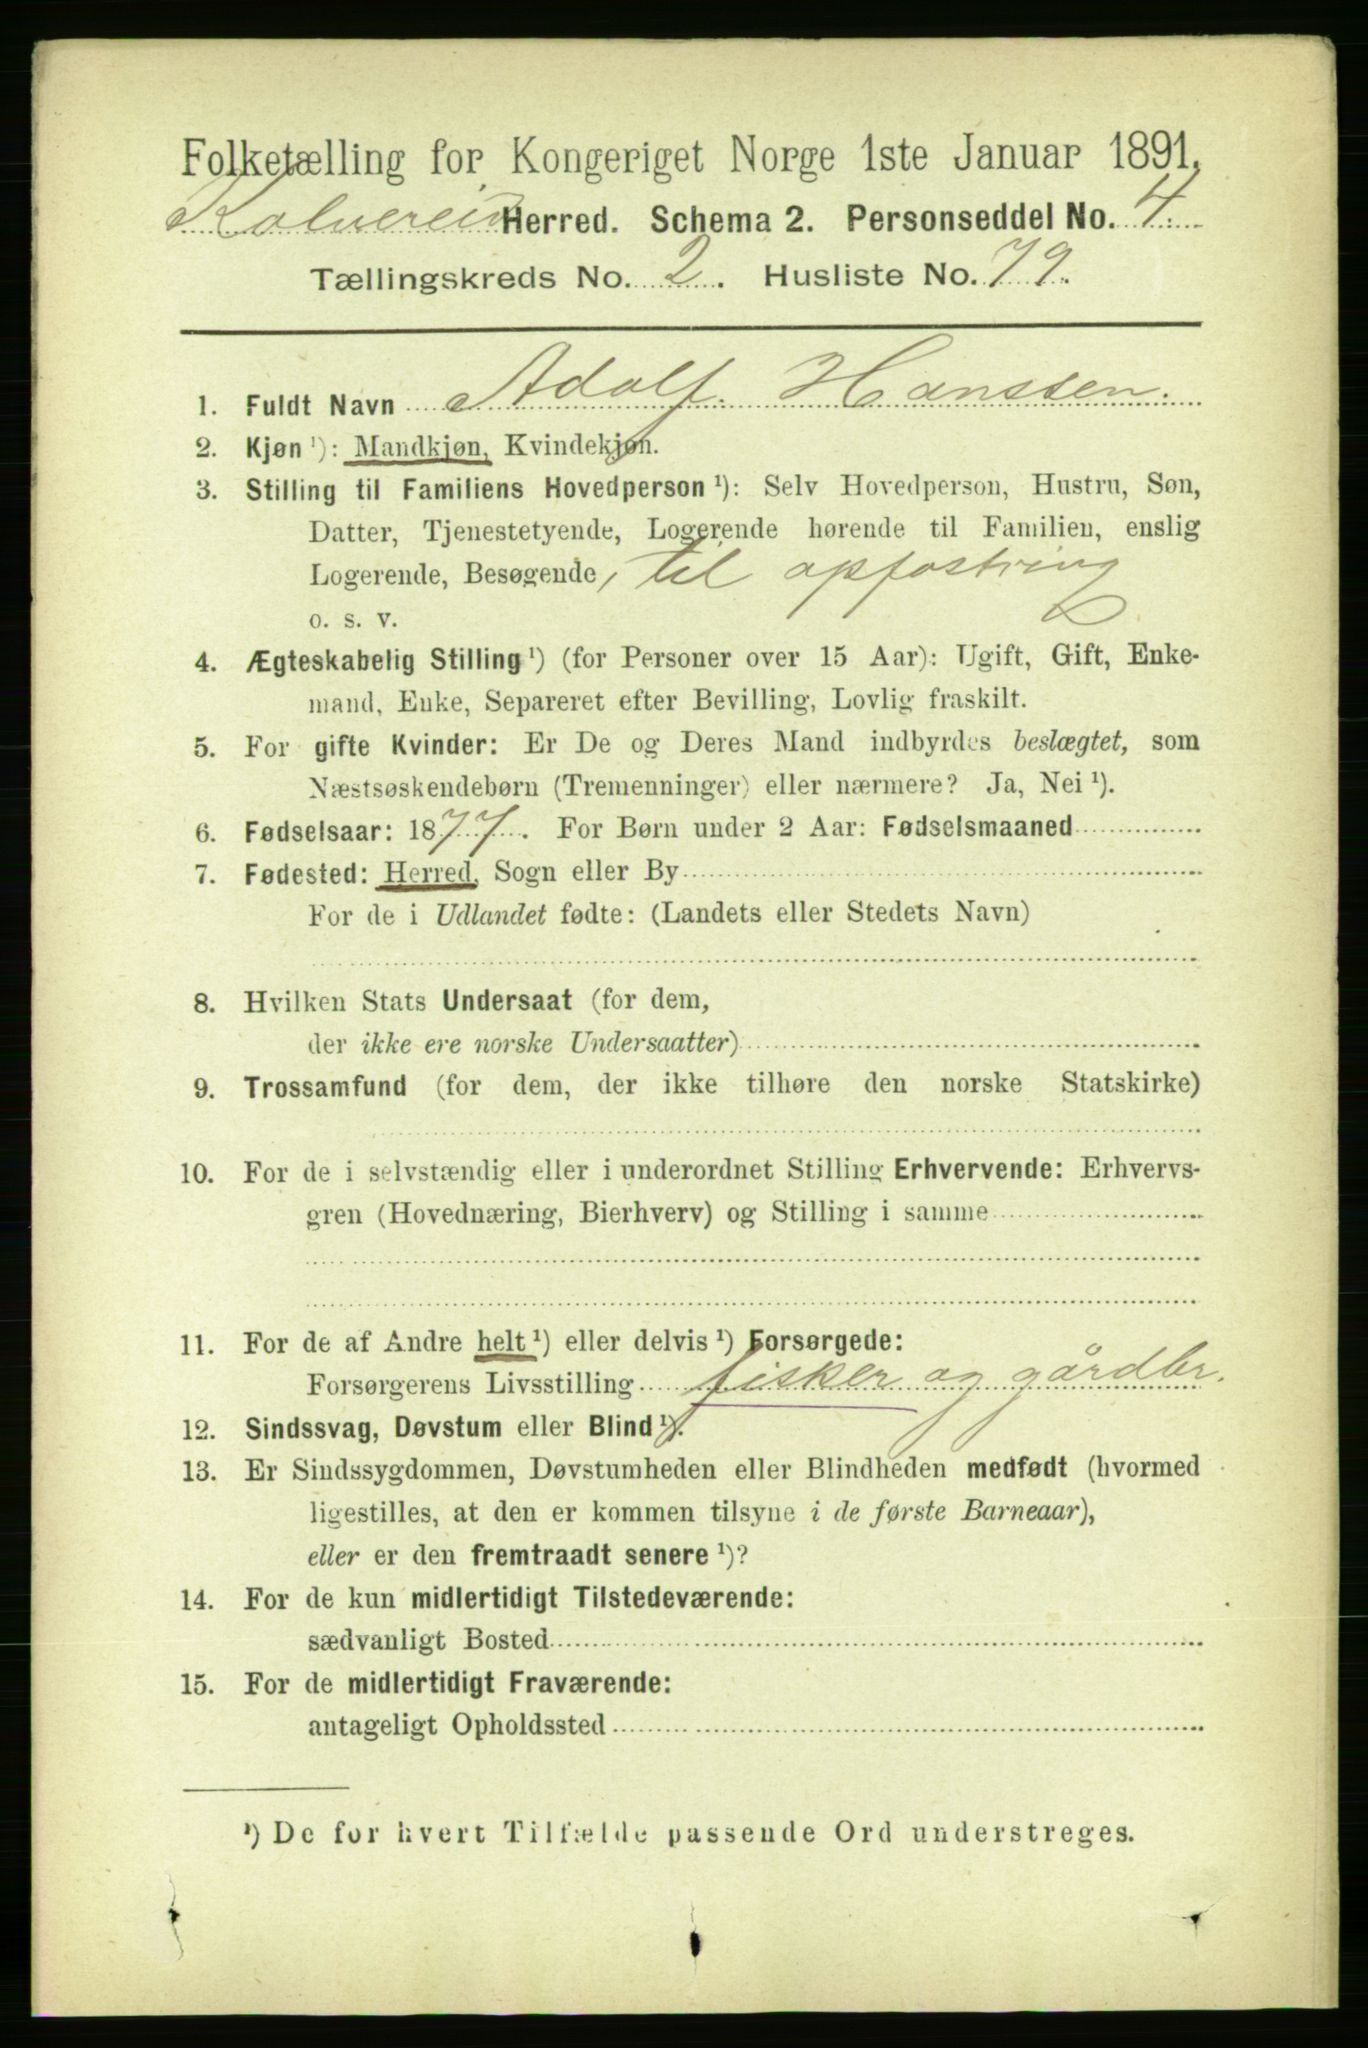 Folketælling for Kongeriget Norge 1ste Januar 1891.
Kolvereid Herred. Schema 2. Personseddel No. 4.
Tællingskreds No. 2. Husliste No. 79.
1. Fuldt Navn Adolf Hanssen.
2. Kjøn ¹): Mandkjøn, Kvindekjøn.
3. Stilling til Familiens Hovedperson ¹): Selv Hovedperson, Hustru, Søn,
Datter, Tjenestetyende, Logerende hørende til Familien, enslig
Logerende, Besøgende, til opfostring
o. s. v.
4. Ægteskabelig Stilling ¹) (for Personer over 15 Aar): Ugift, Gift, Enke-
mand, Enke, Separeret efter Bevilling, Lovlig fraskilt.
5. For gifte Kvinder: Er De og Deres Mand indbyrdes beslægtet, som
Næstsøskendebørn (Tremenninger) eller nærmere? Ja, Nei ¹).
6. Fødselsaar: 1877. For Børn under 2 Aar: Fødselsmaaned
7. Fødested: Herred, Sogn eller By
For de i Udlandet fødte: (Landets eller Stedets Navn)
8. Hvilken Stats Undersaat (for dem,
der ikke ere norske Undersaatter)
9. Trossamfund (for dem, der ikke tilhøre den norske Statskirke)
10. For de i selvstændig eller i underordnet Stilling Erhvervende: Erhvervs-
gren (Hovednæring, Bierhverv) og Stilling i samme
11. For de af Andre helt ¹) eller delvis ¹) Forsørgede:
Forsørgerens Livsstilling fisker og gårdbr.
12. Sindssvag, Døvstum eller Blind ¹).
13. Er Sindssygdommen, Døvstumheden eller Blindheden medfødt (hvormed
ligestilles, at den er kommen tilsyne i de første Barneaar),
eller er den fremtraadt senere ¹)?
14. For de kun midlertidigt Tilstedeværende:
sædvanligt Bosted
15. For de midlertidigt Fraværende:
antageligt Opholdssted
¹) De for hvert Tilfælde passende Ord understreges.